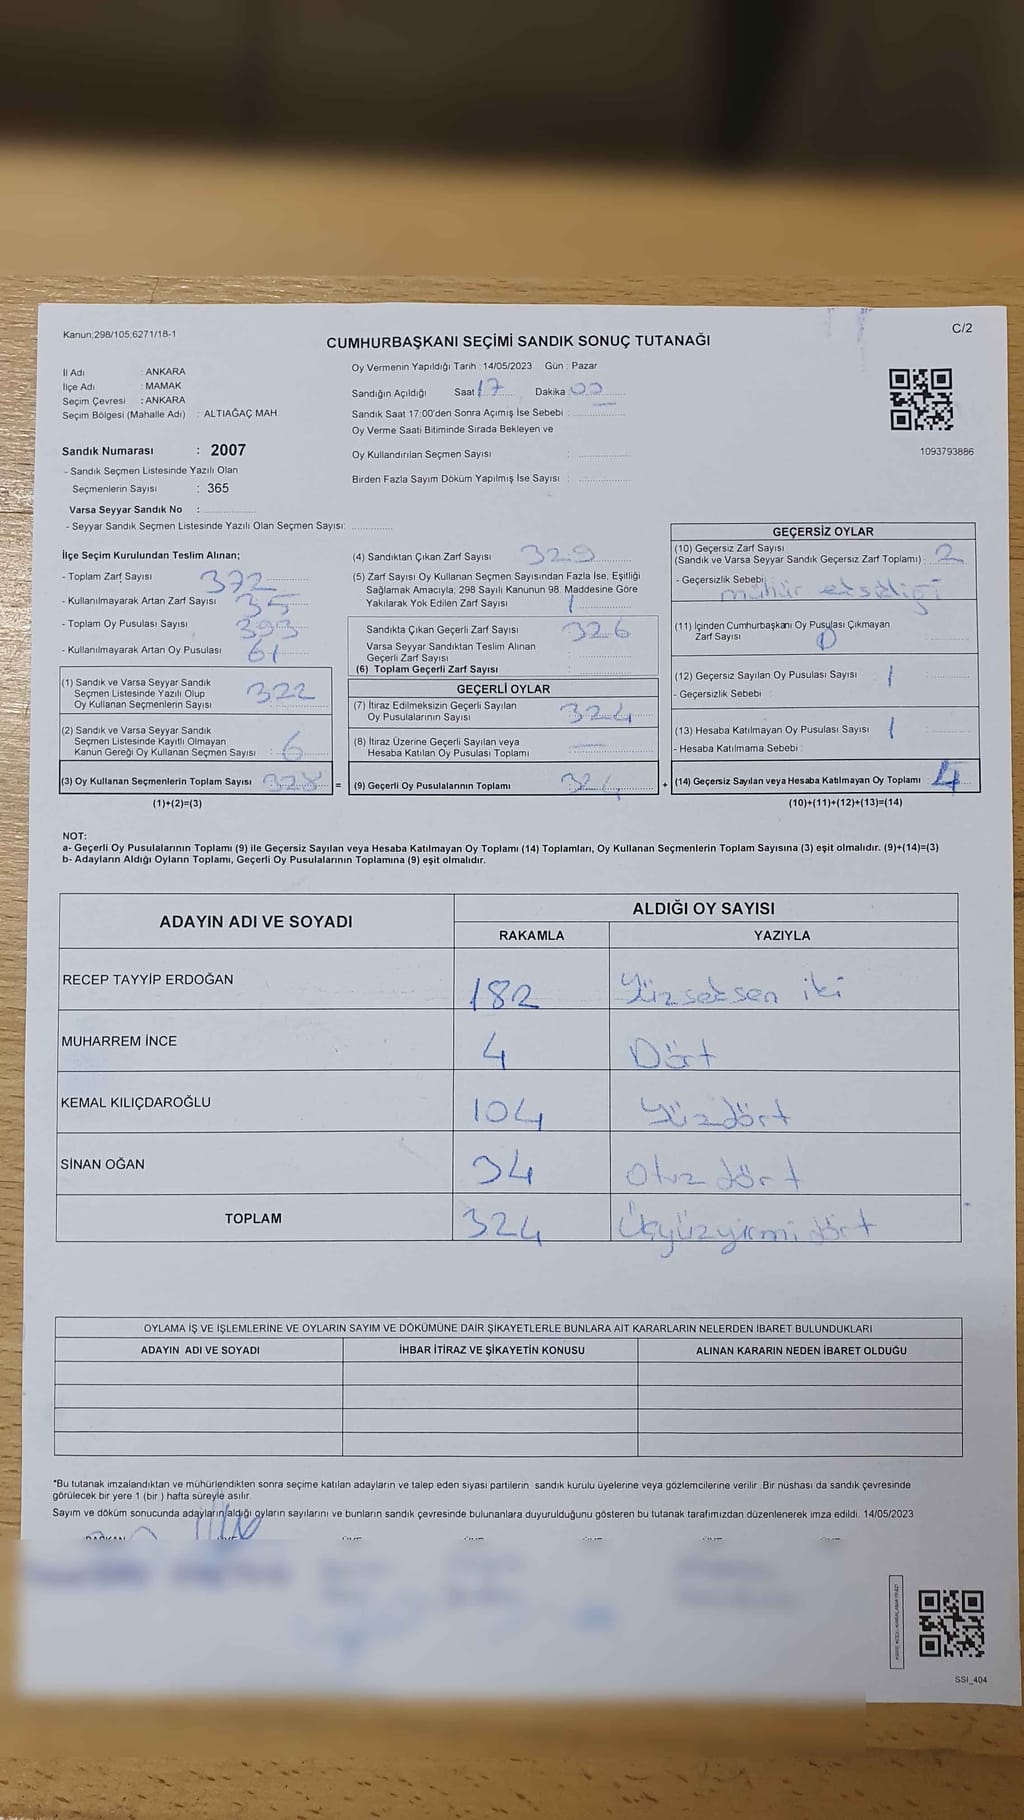 Kanun:298/105;6271/18-1
C/2
CUMHURBAŞKANI SEÇİMİ SANDIK SONUÇ TUTANAĞI
İl Adı : ANKARA
İlçe Adı : MAMAK
Seçim Çevresi : ANKARA
Seçim Bölgesi (Mahalle Adı) : ALTIAĞAÇ MAH.
Sandık Numarası : 2007
- Sandık Seçmen Listesinde Yazılı Olan
Seçmenlerin Sayısı : 365
Varsa Seyyar Sandık No :
- Seyyar Sandık Seçmen Listesinde Yazılı Olan Seçmen Sayısı:
Oy Vermenin Yapıldığı Tarih : 14/05/2023 Gün : Pazar
Sandığın Açıldığı Saat 17 Dakika 00
Sandık Saat 17:00'den Sonra Açımış İse Sebebi :
Oy Verme Saati Bitiminde Sırada Bekleyen ve
Oy Kullandırılan Seçmen Sayısı :
Birden Fazla Sayım Döküm Yapılmış İse Sayısı :
1093793886
İlçe Seçim Kurulundan Teslim Alınan;
- Toplam Zarf Sayısı 372
- Kullanılmayarak Artan Zarf Sayısı 35
- Toplam Oy Pusulası Sayısı 393
- Kullanılmayarak Artan Oy Pusulası 61
(1) Sandık ve Varsa Seyyar Sandık
Seçmen Listesinde Yazılı Olup
Oy Kullanan Seçmenlerin Sayısı 322
(2) Sandık ve Varsa Seyyar Sandık
Seçmen Listesinde Kayıtlı Olmayan
Kanun Gereği Oy Kullanan Seçmen Sayısı : 6
(3) Oy Kullanan Seçmenlerin Toplam Sayısı 328 =
(1)+(2)=(3)
(4) Sandıktan Çıkan Zarf Sayısı 329
(5) Zarf Sayısı Oy Kullanan Seçmen Sayısından Fazla İse, Eşitliği
Sağlamak Amacıyla; 298 Sayılı Kanunun 98. Maddesine Göre
Yakılarak Yok Edilen Zarf Sayısı 1
Sandıkta Çıkan Geçerli Zarf Sayısı : 326
Varsa Seyyar Sandıktan Teslim Alınan
Geçerli Zarf Sayısı
(6) Toplam Geçerli Zarf Sayısı
GEÇERLİ OYLAR
(7) İtiraz Edilmeksizin Geçerli Sayılan
Oy Pusulalarının Sayısı : 324
(8) İtiraz Üzerine Geçerli Sayılan veya
Hesaba Katılan Oy Pusulası Toplamı : —
(9) Geçerli Oy Pusulalarının Toplamı 324 +
GEÇERSİZ OYLAR
(10) Geçersiz Zarf Sayısı
(Sandık ve Varsa Seyyar Sandık Geçersiz Zarf Toplamı) : 2
- Geçersizlik Sebebi: mühür eksikliği
(11) İçinden Cumhurbaşkanı Oy Pusulası Çıkmayan
Zarf Sayısı 0
(12) Geçersiz Sayılan Oy Pusulası Sayısı 1
- Geçersizlik Sebebi :
(13) Hesaba Katılmayan Oy Pusulası Sayısı 1
- Hesaba Katılmama Sebebi :
(14) Geçersiz Sayılan veya Hesaba Katılmayan Oy Toplamı 4
(10)+(11)+(12)+(13)=(14)
NOT:
a- Geçerli Oy Pusulalarının Toplamı (9) ile Geçersiz Sayılan veya Hesaba Katılmayan Oy Toplamı (14) Toplamları, Oy Kullanan Seçmenlerin Toplam Sayısına (3) eşit olmalıdır. (9)+(14)=(3)
b- Adayların Aldığı Oyların Toplamı, Geçerli Oy Pusulalarının Toplamına (9) eşit olmalıdır.
ADAYIN ADI VE SOYADI ALDIĞI OY SAYISI
RAKAMLA YAZIYLA
RECEP TAYYİP ERDOĞAN 182 Yüzseksen iki
MUHARREM İNCE 4 Dört
KEMAL KILIÇDAROĞLU 104 Yüzdört
SİNAN OĞAN 34 Otuz dört
TOPLAM 324 Üçyüzyirmi dört
OYLAMA İŞ VE İŞLEMLERİNE VE OYLARIN SAYIM VE DÖKÜMÜNE DAİR ŞİKAYETLERLE BUNLARA AİT KARARLARIN NELERDEN İBARET BULUNDUKLARI
ADAYIN ADI VE SOYADI İHBAR İTİRAZ VE ŞİKAYETİN KONUSU ALINAN KARARIN NEDEN İBARET OLDUĞU
*Bu tutanak imzalandıktan ve mühürlendikten sonra seçime katılan adayların ve talep eden siyasi partilerin sandık kurulu üyelerine veya gözlemcilerine verilir. Bir nüshası da sandık çevresinde
görülecek bir yere 1 (bir ) hafta süreyle asılır.
Sayım ve döküm sonucunda adayların aldığı oyların sayılarını ve bunların sandık çevresinde bulunanlara duyurulduğunu gösteren bu tutanak tarafımızdan düzenlenerek imza edildi. 14/05/2023
SSI_404